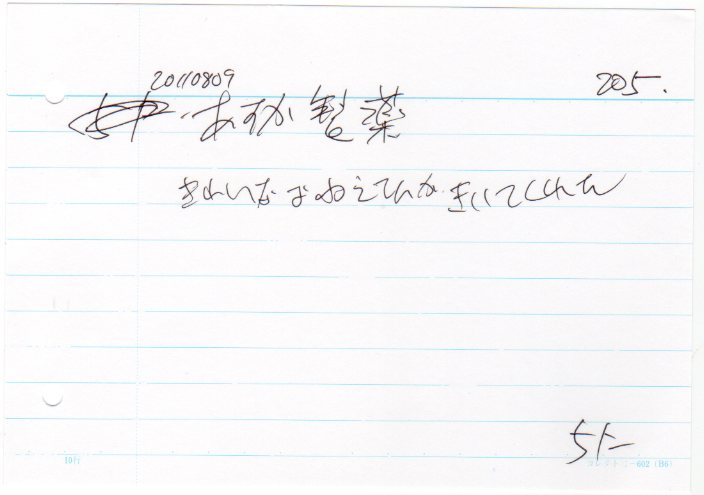 20110809
205.
あすか製薬
きれいなおねえさんがきいてくれた
10行
コレクト C-602 (B6)